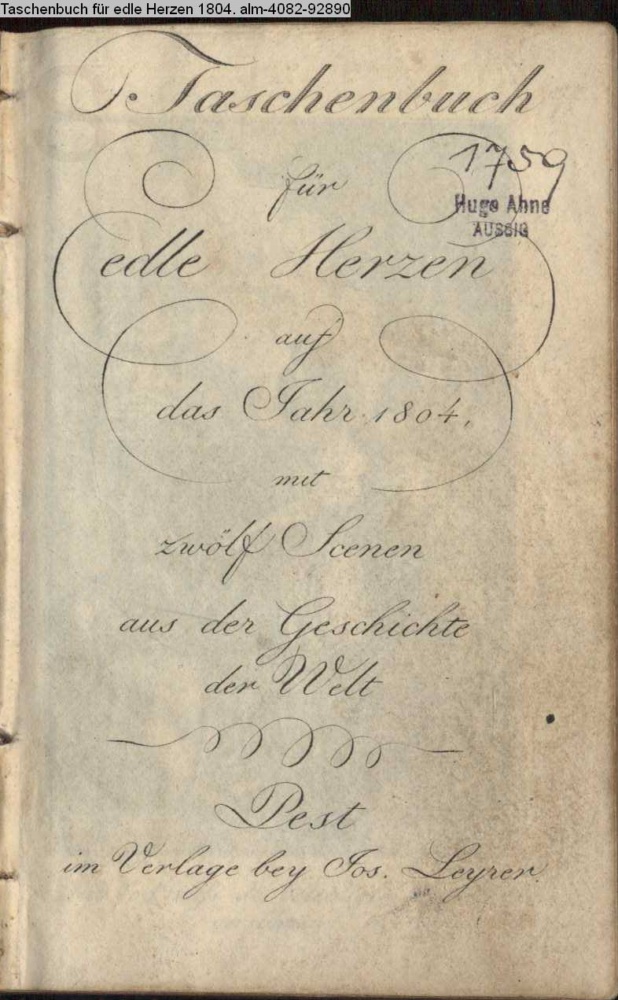 Taschenbuch für edle Herzen 1804. alm-4082-92890
Taschenbuch
für
1759
Hugo Ahne
AUSSIG
edle Herzen
auf
das Jahr 1804,
mit
zwölf Scenen
aus der Geschichte
der Welt
Pest
im Verlage bey Jos. Leyrer.